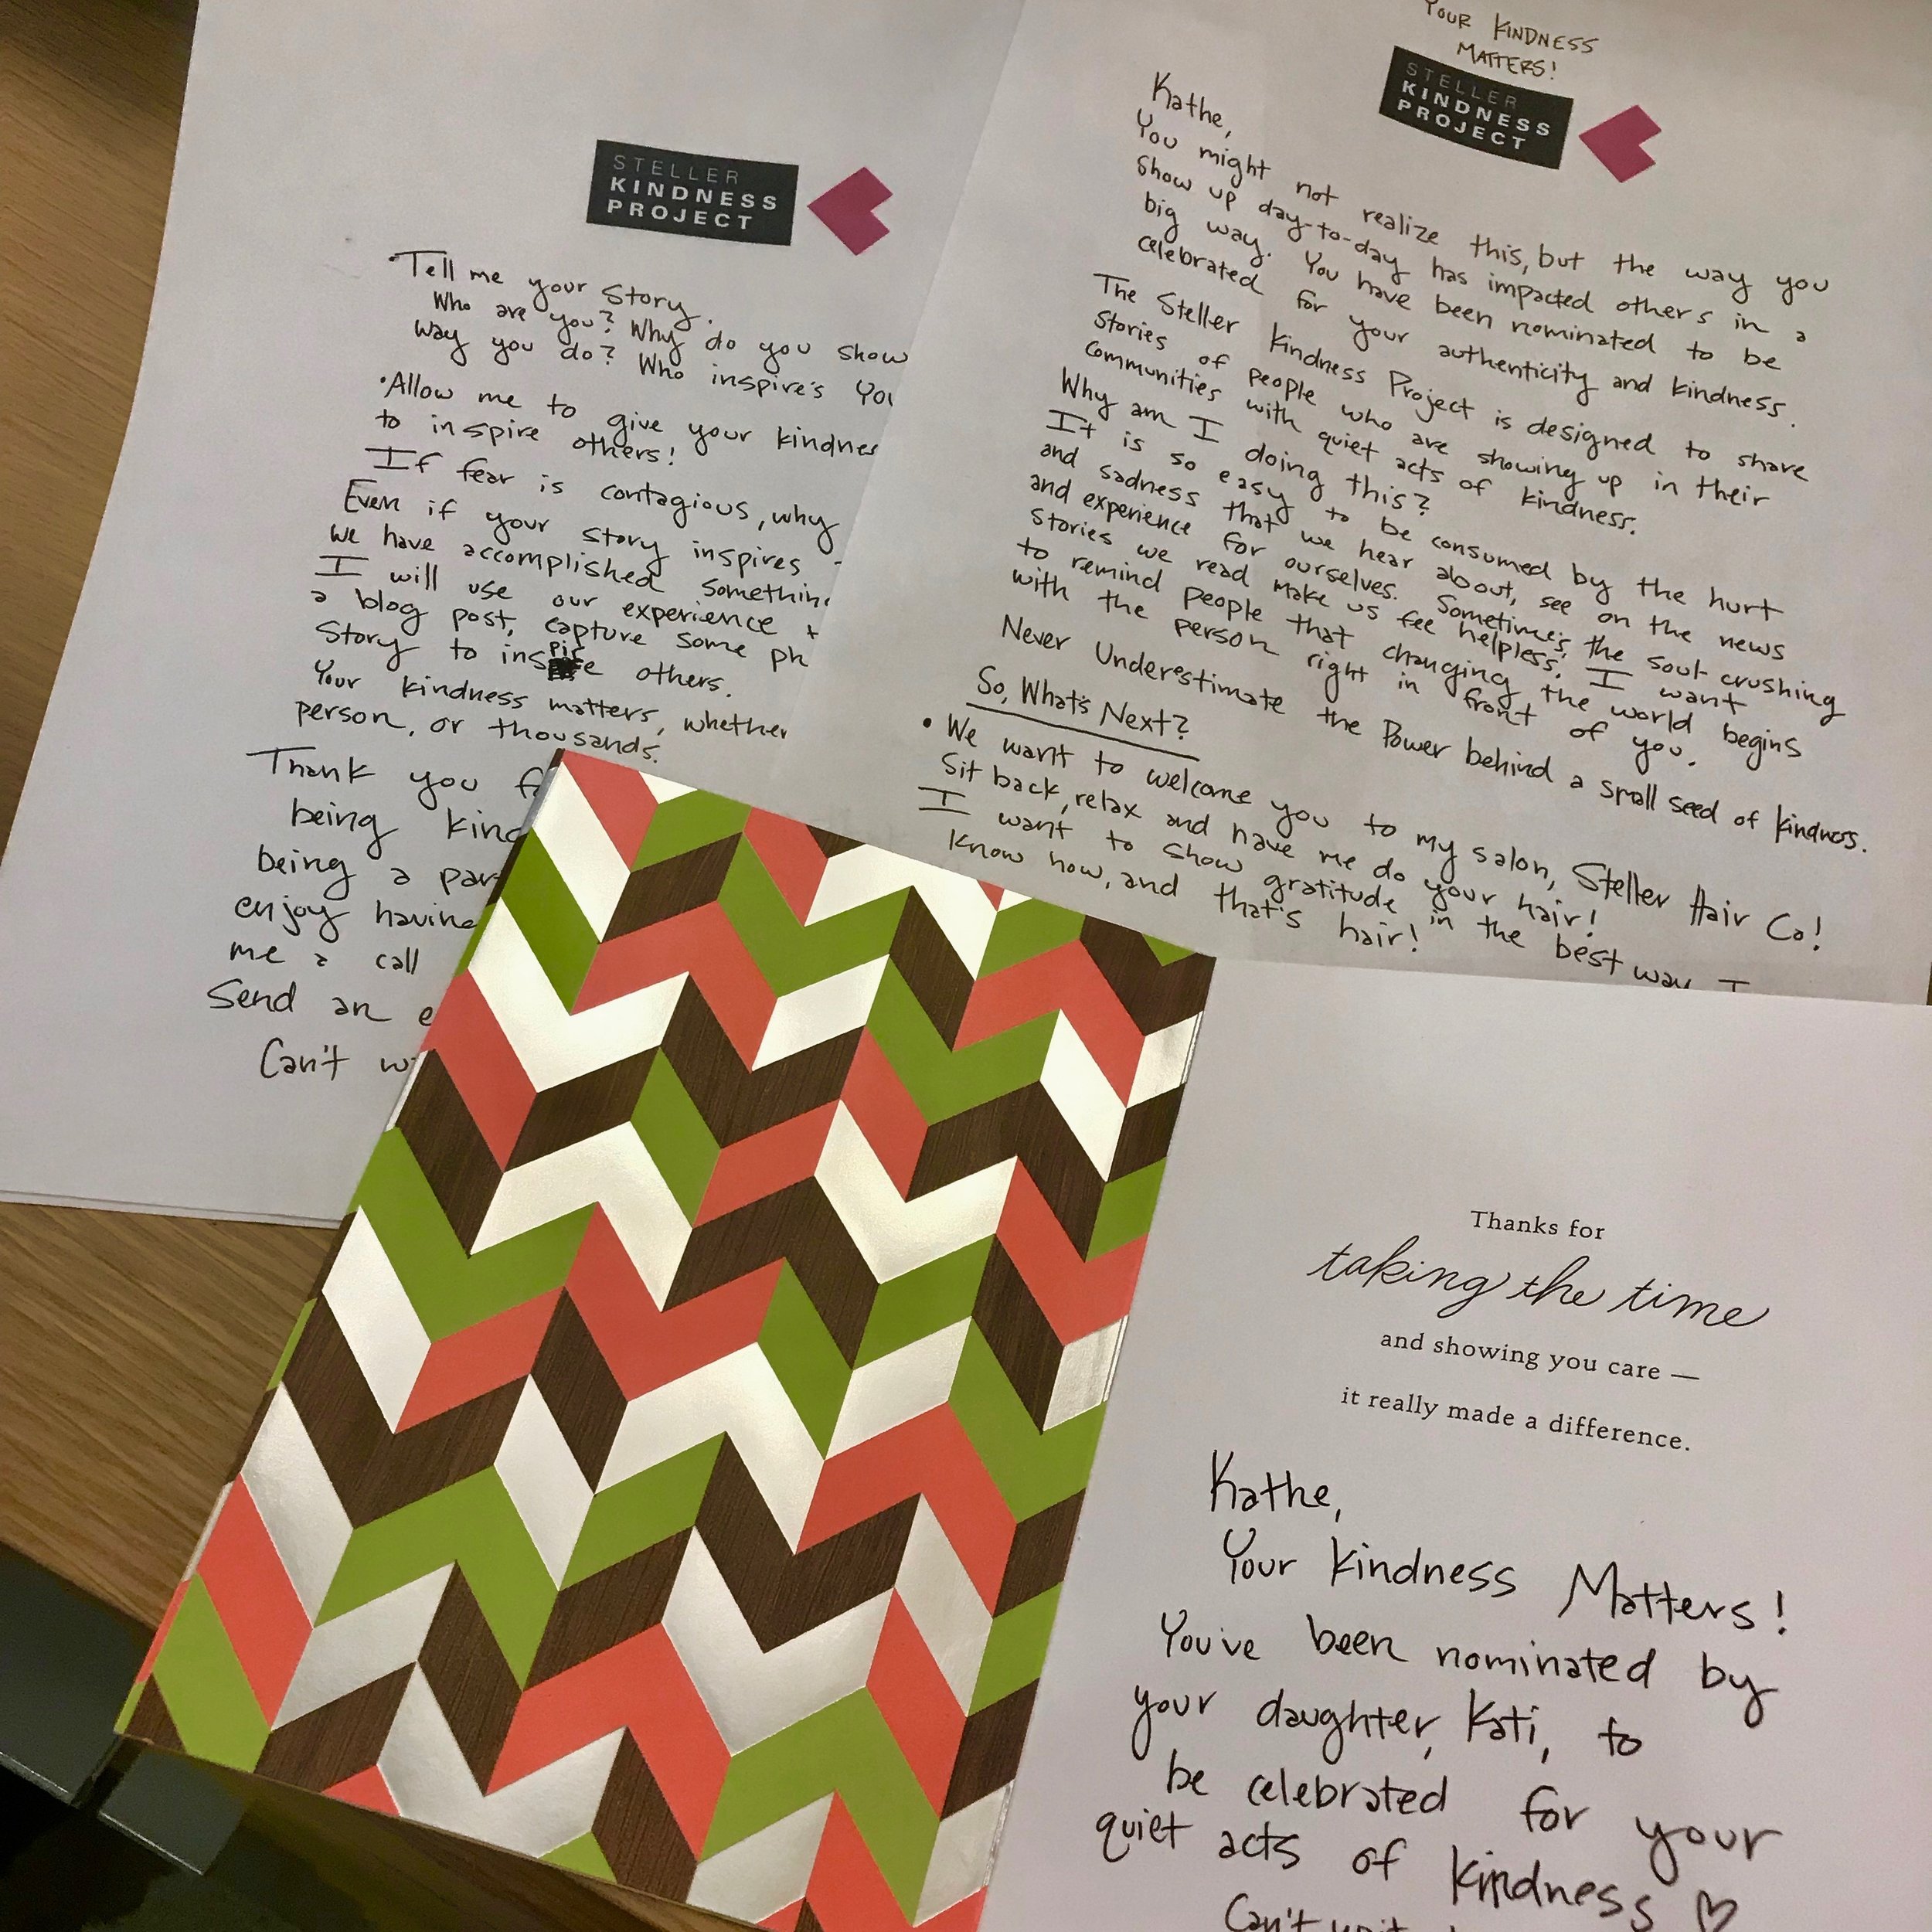 STELLER
KINDNESS
PROJECT
• Tell me your story.
Who are you? Why do you show
way you do? Who inspire's
• Allow me to give your
to inspire others!
If fear is contagious, why
Even if your story inspires
we have accomplished
I will use our experience
a blog post, capture some
Story to inspire others.
Your kindness matters, whether
person, or thousands.
Thank you
being
being a
enjoy
me a call
Send an
Can't
YOUR KINDNESS
MATTERS!
STELLER
KINDNESS
PROJECT
Kathe,
You might not realize this, but the way you
show up day-to-day has impacted others in a
big way. You have been nominated to be
celebrated for your authenticity and kindness.
The Steller Kindness Project is designed to share
stories of people who are showing up in their
communities with quiet acts of kindness.
Why am I doing this?
It is so easy to be consumed by the hurt
and sadness that we hear about, see on the news
and experience for ourselves. Sometimes, the soul-crushing
stories we read make us feel helpless. I want
to remind people that changing the world begins
with the person right in front of you.
Never Underestimate the Power behind a small seed of kindness.
So, What's Next?
• We want to welcome you to my salon, Steller Hair Co!
Sit back, relax and have me do your hair!
I want to show gratitude in the best way I
know how, and that's hair!
Thanks for
taking the time
and showing you care —
it really made a difference.
Kathe,
Your kindness Matters!
You've been nominated by
your daughter, Kati, to
be celebrated for your
quiet acts of kindness ♡
Can't wait